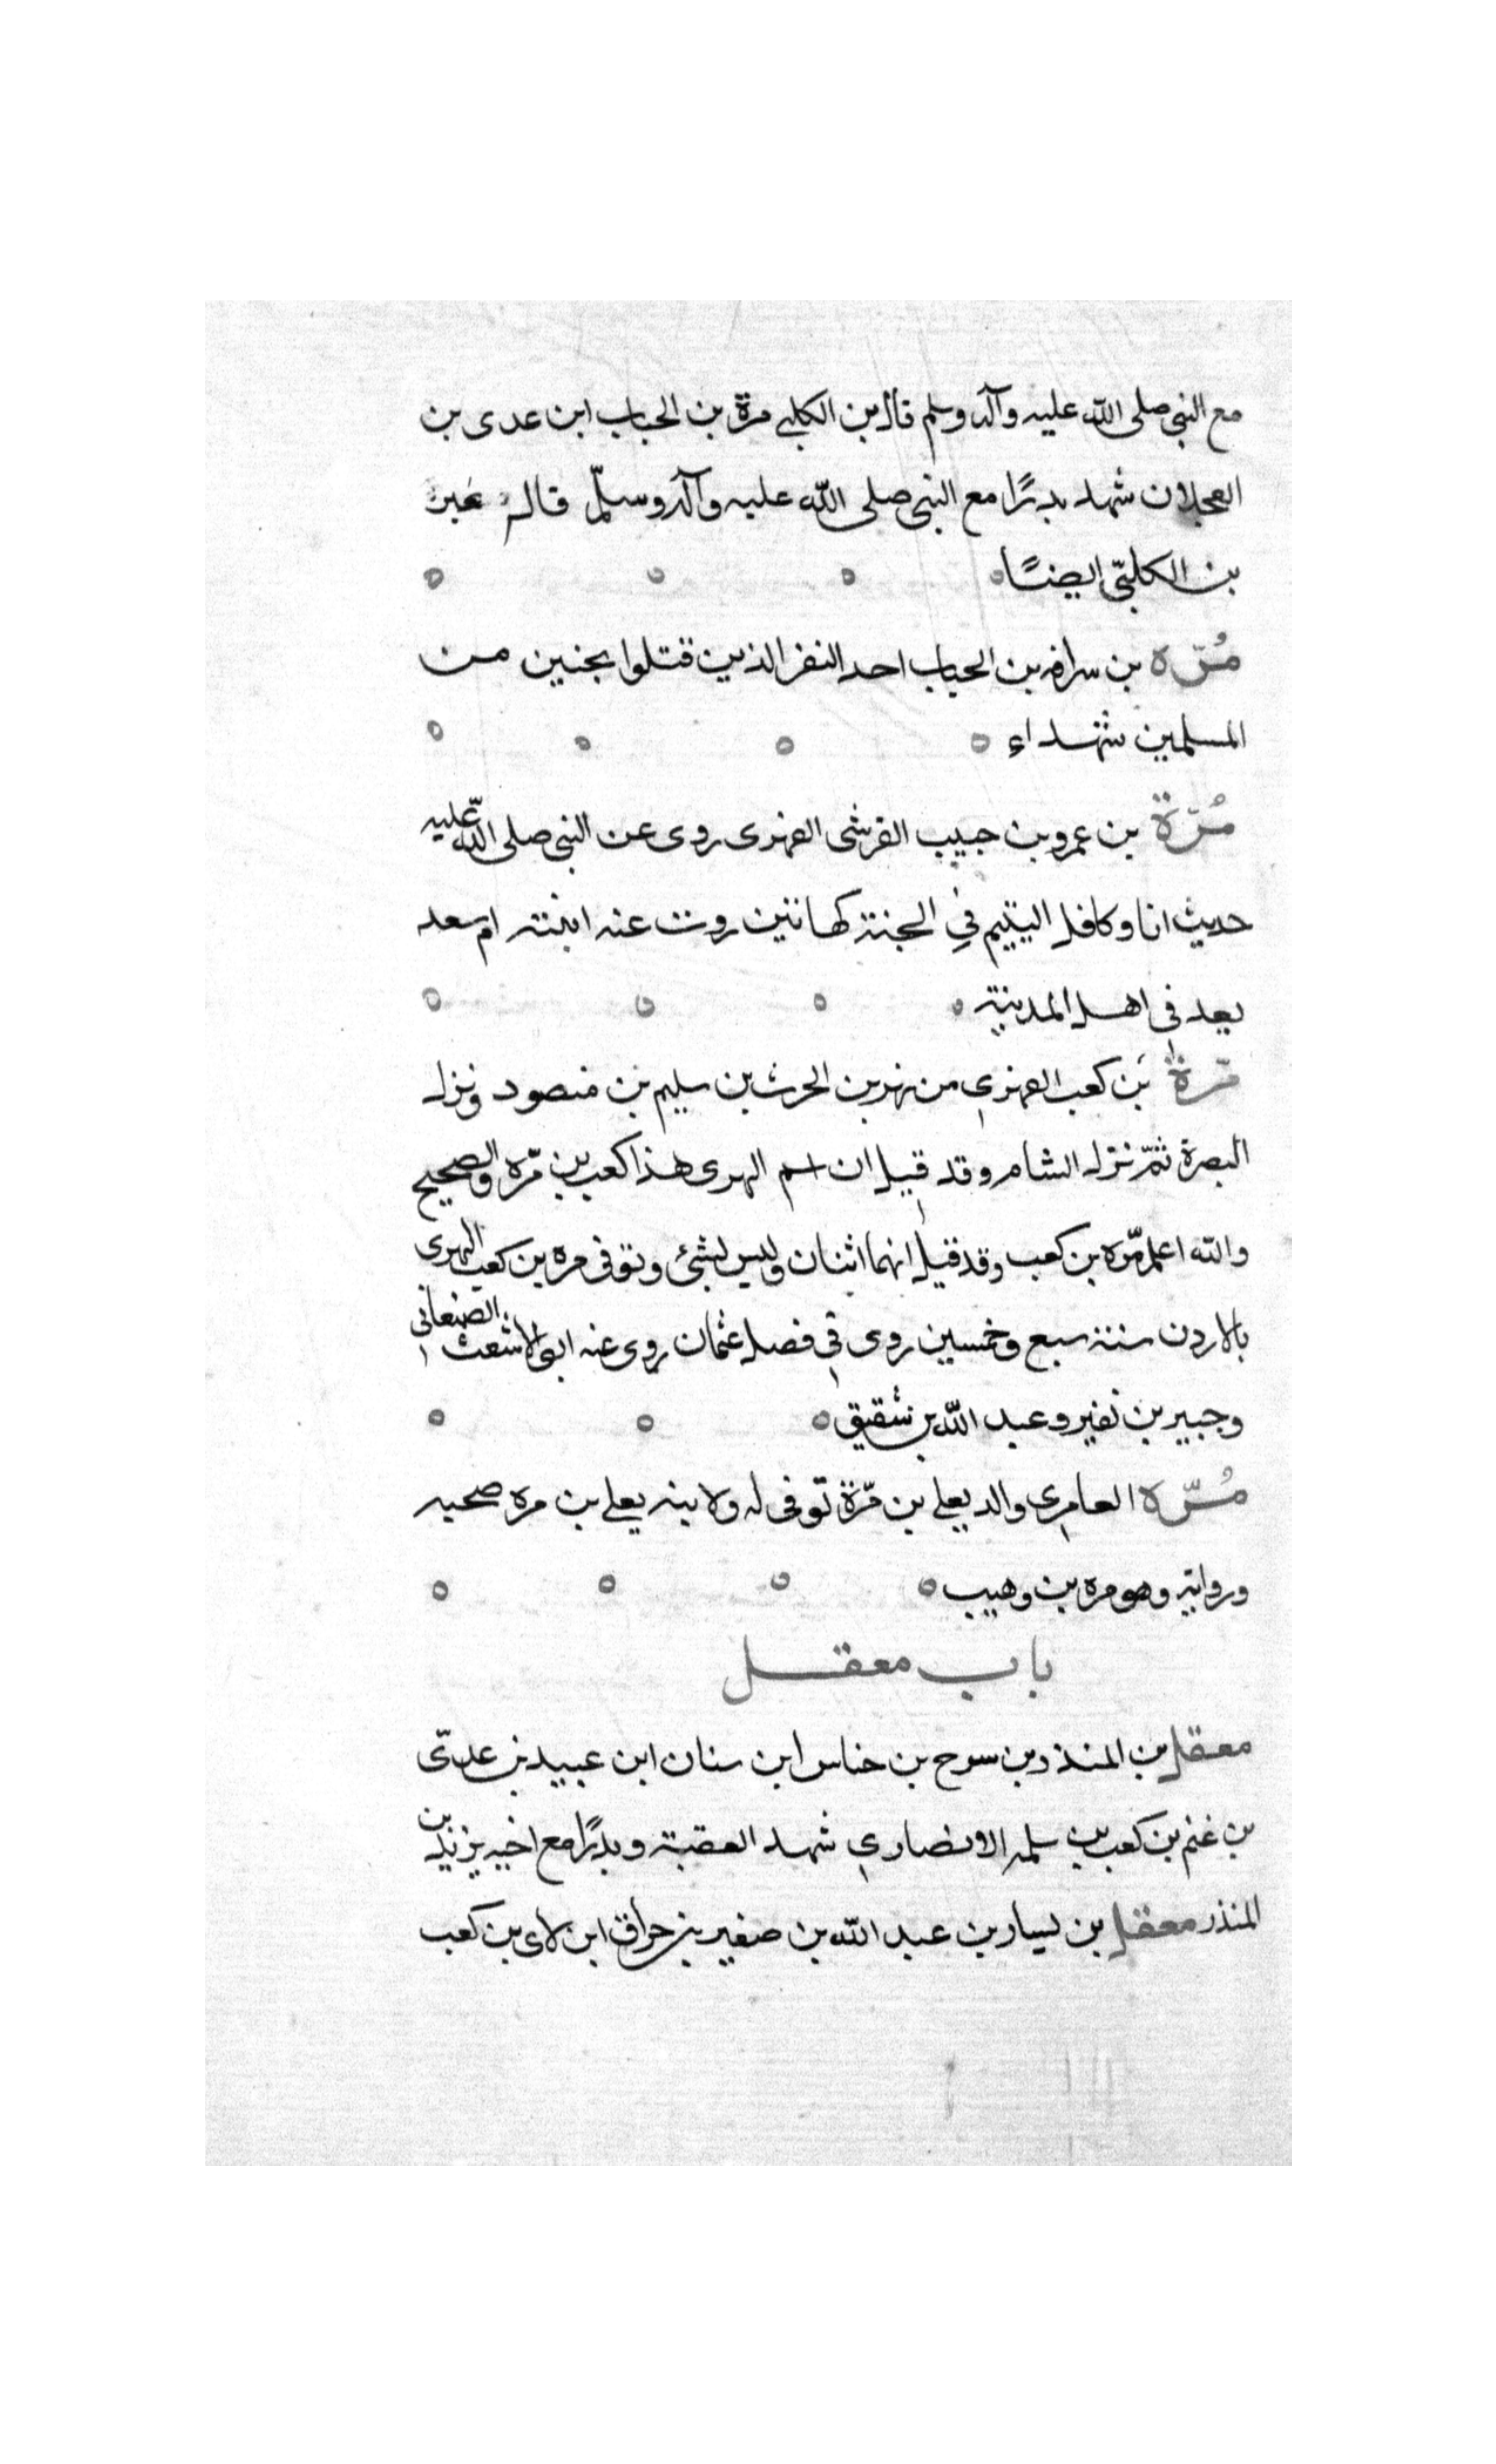 مع النبي صلى الله عليه وآله وسلم قال بن الكلبي مرة بن الحباب ابن عدى بن
العجلان شهد بدرًا مع النبي صلى الله عليه وآله وسلّم قال غير
بن الكلبّي ايضًا
مُرّه بن سراقه بن الحباب احد النفر الذين قتلوا بحنين من
المسلمين شهداء
مُرّة بن عمرو بن حبيب القرشى الفهرى روى عن النبي صلى الله عليه
حديث انا وكافل اليتيم في الجنة كهاتين روت عنه ابنته ام سعد
يعد في اهل المدينة
مرّة بن كعب البهزي من بهز بن الحرث بن سليم بن منصور ونزل
البصرة ثمّ نزل الشام وقد قيل ان اسم البهرى هذا كعب بن مرّه والصحيح
والله اعلم مرّه بن كعب وقد قيل انهما اثنان وليس بشئ وتوفى مره بن كعب البهرى
بالاردن سنة سبع وخمسين روى في فضل عثمان روى عنه ابو الاشعث الصنعاني
وجبير بن نفير وعبد الله بن شقيق
مُرّه العامري والد يعلى بن مرّة توفى له ولابنه يعلى بن مره صحبه
ورواية وهو مره بن وهيب
باب معقل
معقل بن المنذر بن سرح بن خناس ابن سنان ابن عبيد بن عدىّ
بن غنم بن كعب بن سلمه الانصاري شهد العقبة وبدرًا مع اخيه يزيد بن
المنذر معقل بن يسار بن عبد الله بن صغير بن حراق ابن لاى بن كعب